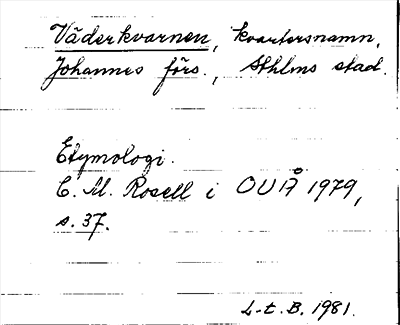 Väderkvarnen, kvartersnamn,
Johannes förs., Sthlms stad.
Etymologi.
C. M. Rosell i OUÅ 1979,
s. 37.
L-t. B. 1981.